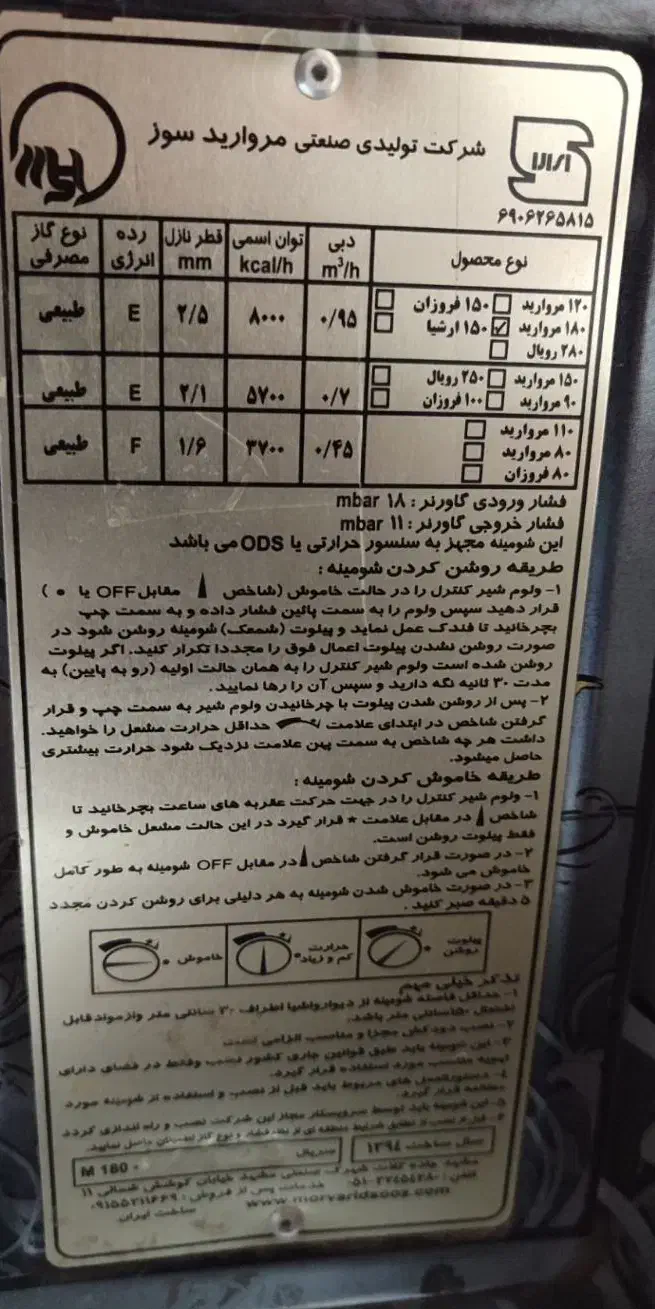 شرکت تولیدی صنعتی مروارید سوز
۶۹۰۶۲۶۵۸۱۵
نوع محصول دبی m³/h توان اسمی kcal/h قطر نازل mm رده انرژی نوع گاز مصرفی
۱۲۰ مروارید ۱۵۰ فروزان
۱۸۰ مروارید ۱۵۰ ارشیا
۲۸۰ رویال
۰/۹۵ ۸۰۰۰ ۲/۵ E طبیعی
۱۵۰ مروارید ۲۵۰ رویال
۹۰ مروارید ۱۰۰ فروزان
۰/۷ ۵۷۰۰ ۲/۱ E طبیعی
۱۱۰ مروارید
۸۰ مروارید
۸۰ فروزان
۰/۴۵ ۳۷۰۰ ۱/۶ F طبیعی
فشار ورودی گاورنر : ۱۸ mbar
فشار خروجی گاورنر : ۱۱ mbar
این شومینه مجهز به سنسور حرارتی یا ODS می باشد
طریقه روشن کردن شومینه :
۱- ولوم شیر کنترل را در حالت خاموش (شاخص مقابل OFF یا ● )
قرار دهید سپس ولوم را به سمت پائین فشار داده و به سمت چپ
بچرخانید تا فندک عمل نماید و پیلوت (شمعک) شومینه روشن شود در
صورت روشن نشدن پیلوت اعمال فوق را مجددا تکرار کنید. اگر پیلوت
روشن شده است ولوم شیر کنترل را به همان حالت اولیه (رو به پایین) به
مدت ۳۰ ثانیه نگه دارید و سپس آن را رها نمایید.
۲- پس از روشن شدن پیلوت با چرخانیدن ولوم شیر به سمت چپ و قرار
گرفتن شاخص در ابتدای علامت حداقل حرارت مشعل را خواهید.
داشت هر چه شاخص به سمت پهن علامت نزدیک شود حرارت بیشتری
حاصل میشود.
طریقه خاموش کردن شومینه :
۱- ولوم شیر کنترل را در جهت حرکت عقربه های ساعت بچرخانید تا
شاخص در مقابل علامت * قرار گیرد در این حالت مشعل خاموش و
فقط پیلوت روشن است.
۲- در صورت قرار گرفتن شاخص در مقابل OFF شومینه به طور کامل
خاموش می شود.
۳- در صورت خاموش شدن شومینه به هر دلیلی برای روشن کردن مجدد
۵ دقیقه صبر کنید .
پیلوت روشن حرارت کم و زیاد خاموش
تذکر خیلی مهم
۱- حداقل فاصله شومینه از دیوار واشیا اطراف ۳۰ سانتی متر وازموندقابل
اشتعال ۱۵۰سانتی متر باشد.
۲- نصب دودکش مجزا و مناسب الزامی است
۳- این شومینه باید طبق قوانین جاری کشور نصب وفقط در فضای دارای
تهویه مناسب مورد استفاده قرار گیرد.
۴- دستورالعمل های مربوط باید قبل از نصب و استفاده از شومینه مورد
مطالعه قرار گیرد.
۵- این شومینه باید توسط سرویسکار مجاز این شرکت نصب و راه اندازی گردد
سال ساخت ۱۳۹۴ سریال M 180
مشهد جاده کلات شهرک صنعتی مشهد خیابان کوشش شمالی ۱۱
خدمات پس از فروش : ۰۹۱۵۵۲۱۱۶۶۹
www.morvaridsooz.com
ساخت ایران